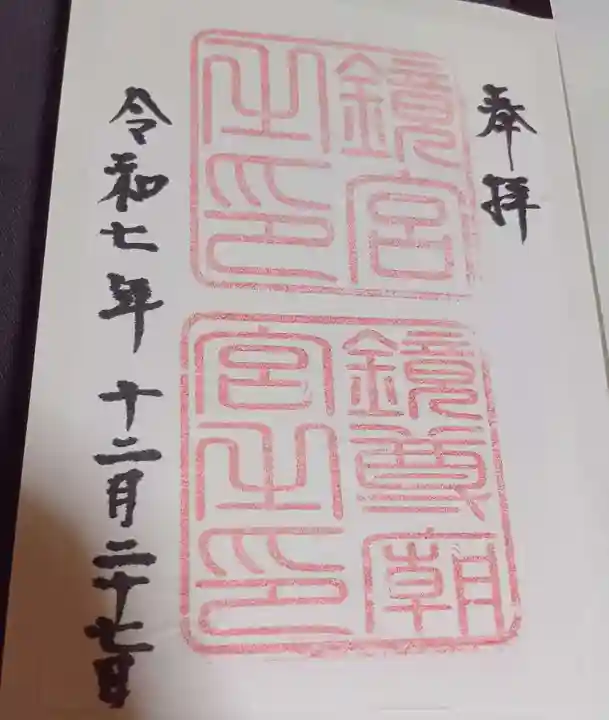 奉拝
鏡宮
之印
鏡尊廟
宮之印
令和七年 十二月二十七日